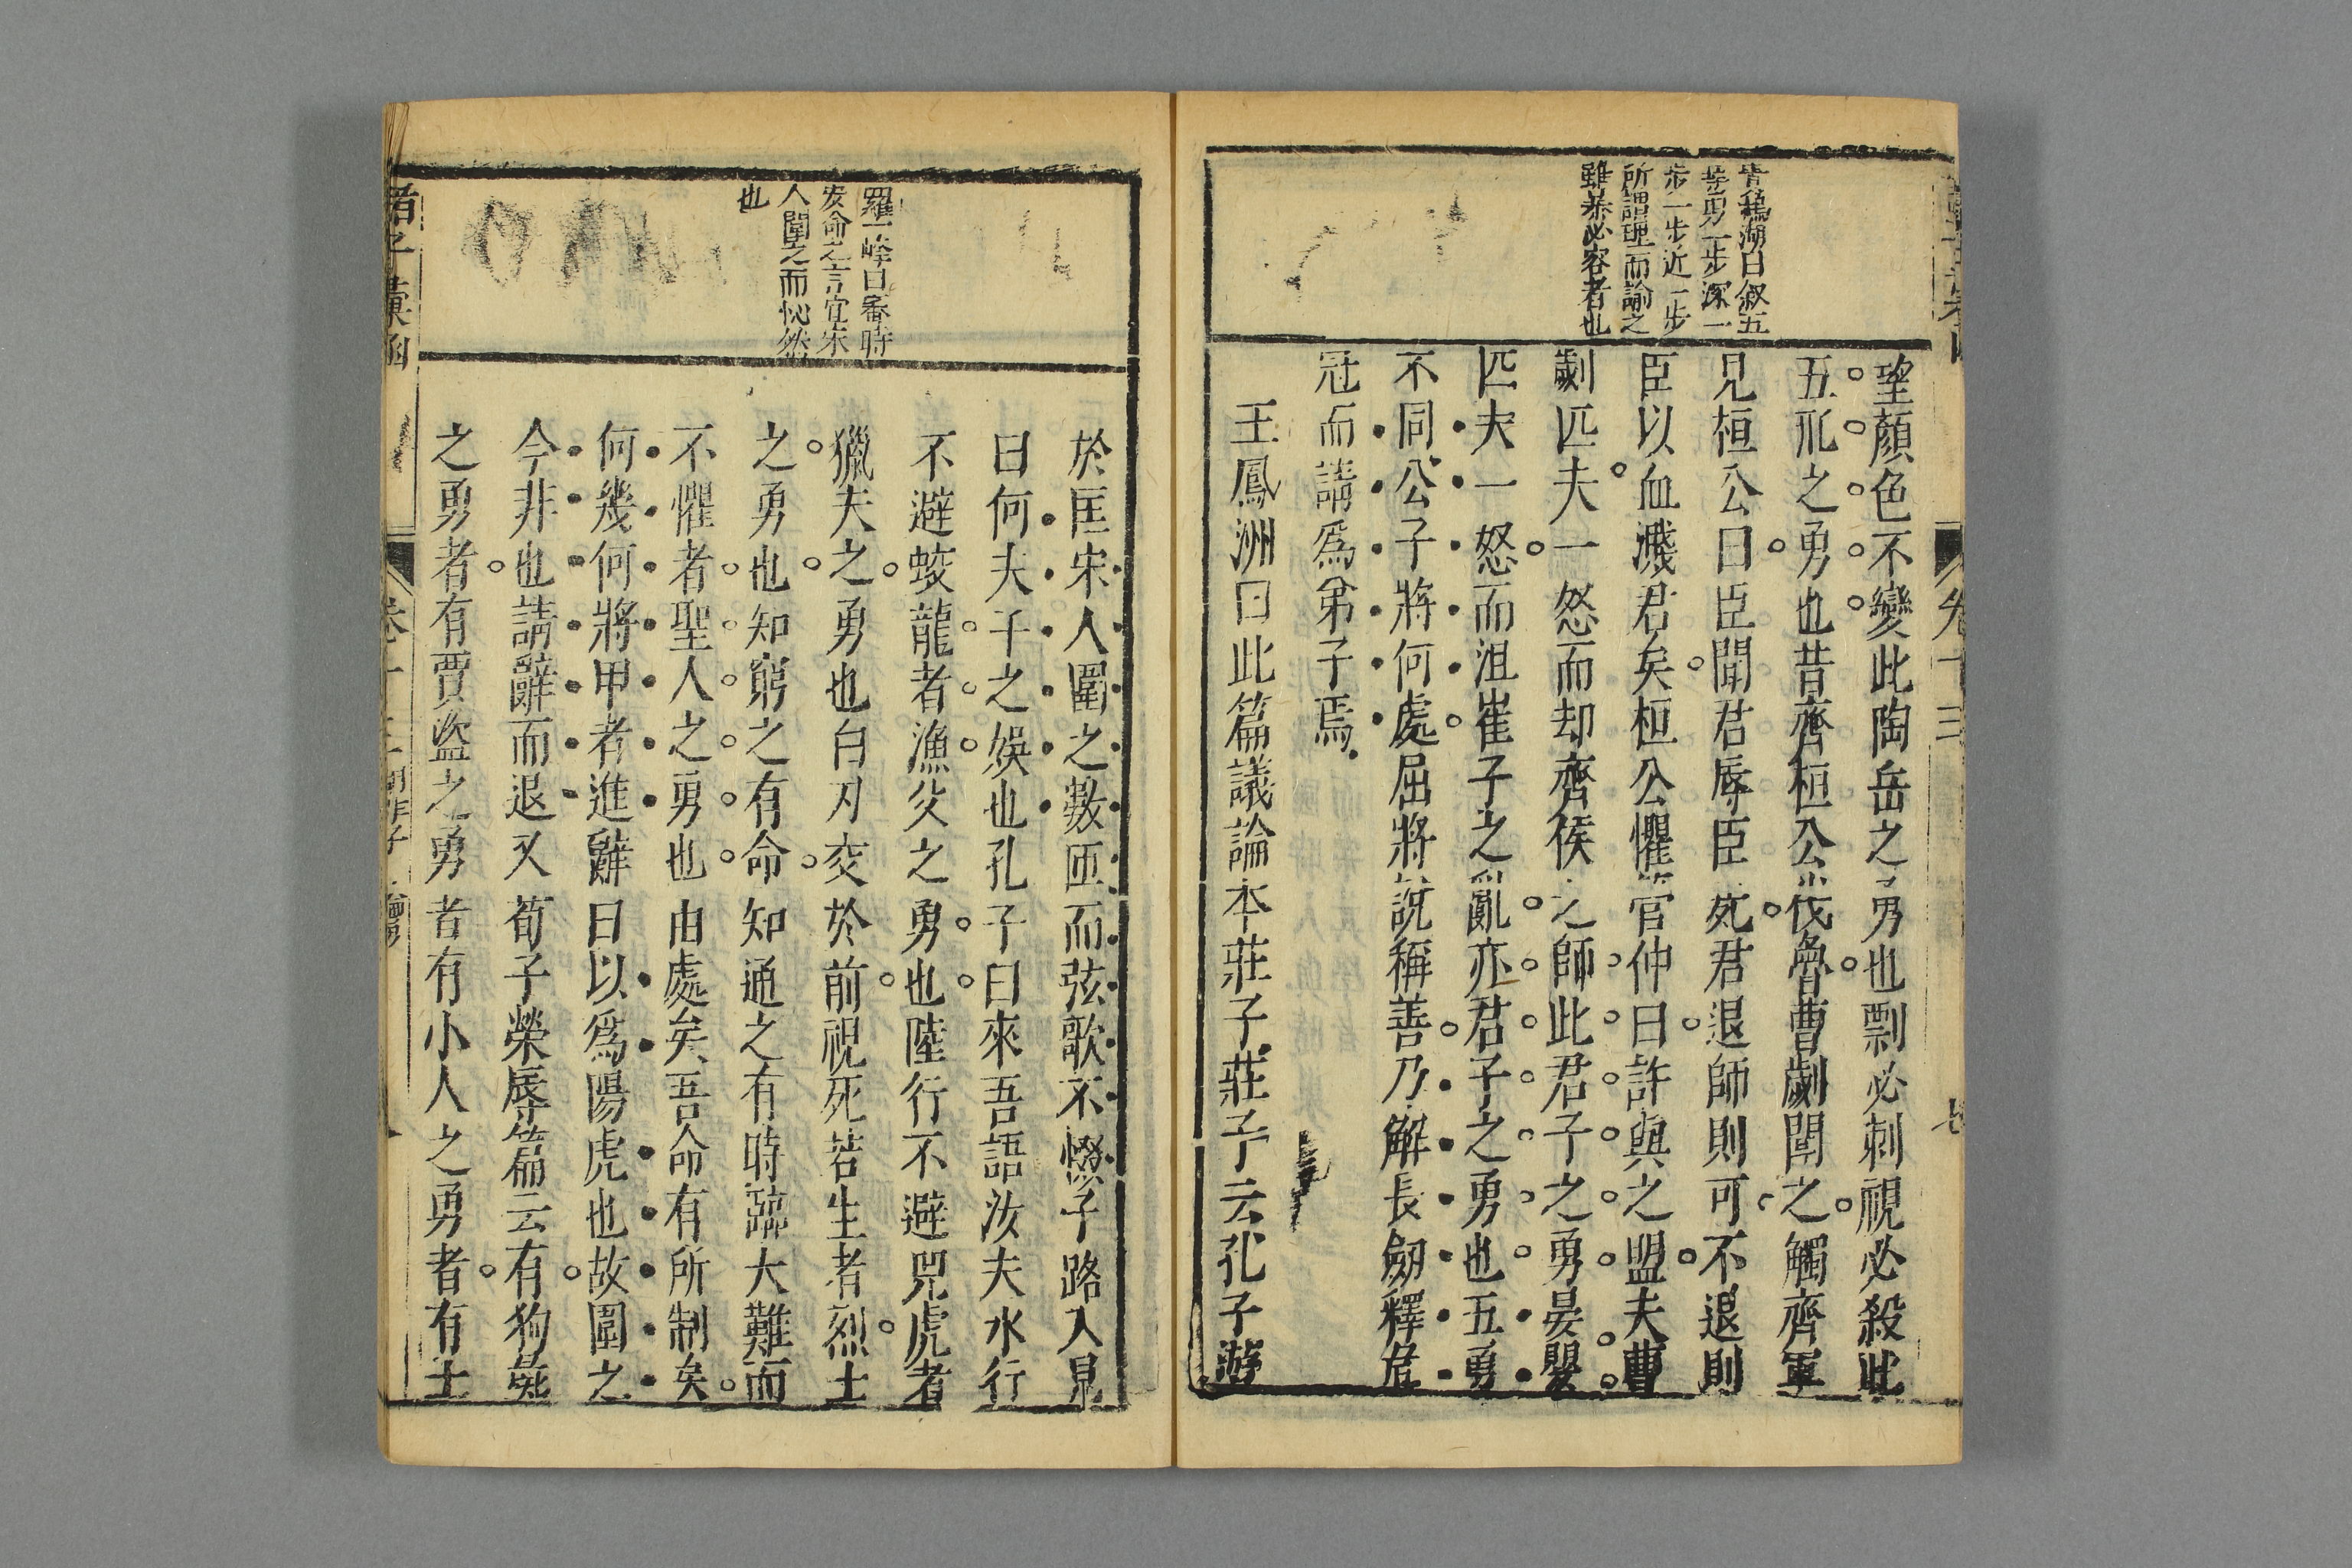 卷十三
七
曹穐湖曰叙五
等勇一步深一
步一步近一步
所謂理而諭之
雖暴必容者也
望顏色不變此陶岳之勇也剽必刺視必殺此
五𠛬之勇也昔齊桓公伐魯曹劌聞之觸齊軍
見桓公曰臣聞君辱臣死君退師則可不退則
臣以血濺君矣桓公懼管仲曰許與之盟夫曹
劌匹夫一怒而却齊侯之師此君子之勇晏嬰
匹夫一怒而沮崔子之亂亦君子之勇也五勇
不同公子將何處屈將說稱善乃解長劒釋危
冠而請爲弟子焉
王鳳洲曰此篇議論本莊子莊子云孔子遊
羅一峰曰審時
安命之言宜宋
人圍之而怭然
也
於匡宋人圍之數匝而弦歌不惙子路入見
曰何夫子之娛也孔子曰來吾語汝夫水行
不避蛟龍者漁父之勇也陸行不避兕虎者
獵夫之勇也白刃交於前視死若生者烈士
之勇也知窮之有命知通之有時臨大難而
不懼者聖人之勇也由處矣吾命有所制矣
何幾何將甲者進辭曰以爲陽虎也故圍之
今非也請辭而退又荀子榮辱篇云有狗彘
之勇者有賈盗之勇者有小人之勇者有士
諸子彙函
卷十三
胡非子
論勇